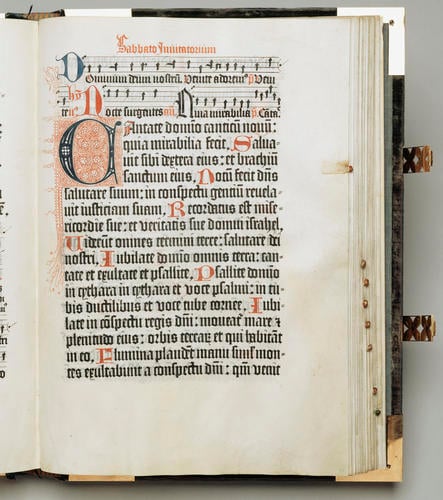 Sabbato Inuitatorium
Dominum deum nostrū. Venite adorem⁹ p̄ Veni
te hȳ Nocte surgentes añ Quia mirabilia p̄s Cāta
CAntate domīo canticū nouū:
quia mirabilia fecit. Salua-
uit sibi dextera eius: et brachiū
sanctum eius. Notū fecit dūs
salutare suum: in conspectu gentiū reuela-
uit iusticiam suam. Recordatus est mise-
ricordie sue: et veritatis sue domui israhel.
Uiderūt omnes termini terre: salutare dei
nostri. Iubilate domīo omnis terra: can-
tate et exultate et psallite. Psallite domīo
in cythara in cythara et voce psalmi: in tu-
bis ductilibus et voce tube cornee. Iubi-
late in cōspectu regis dñi: moueat᷑ mare et
plenitudo eius: orbis terrarꝫ et qui habitāt
in eo. Flumina plaudēt manu simƚ mon-
tes exultabunt a conspectu dñi: qm̄ venit